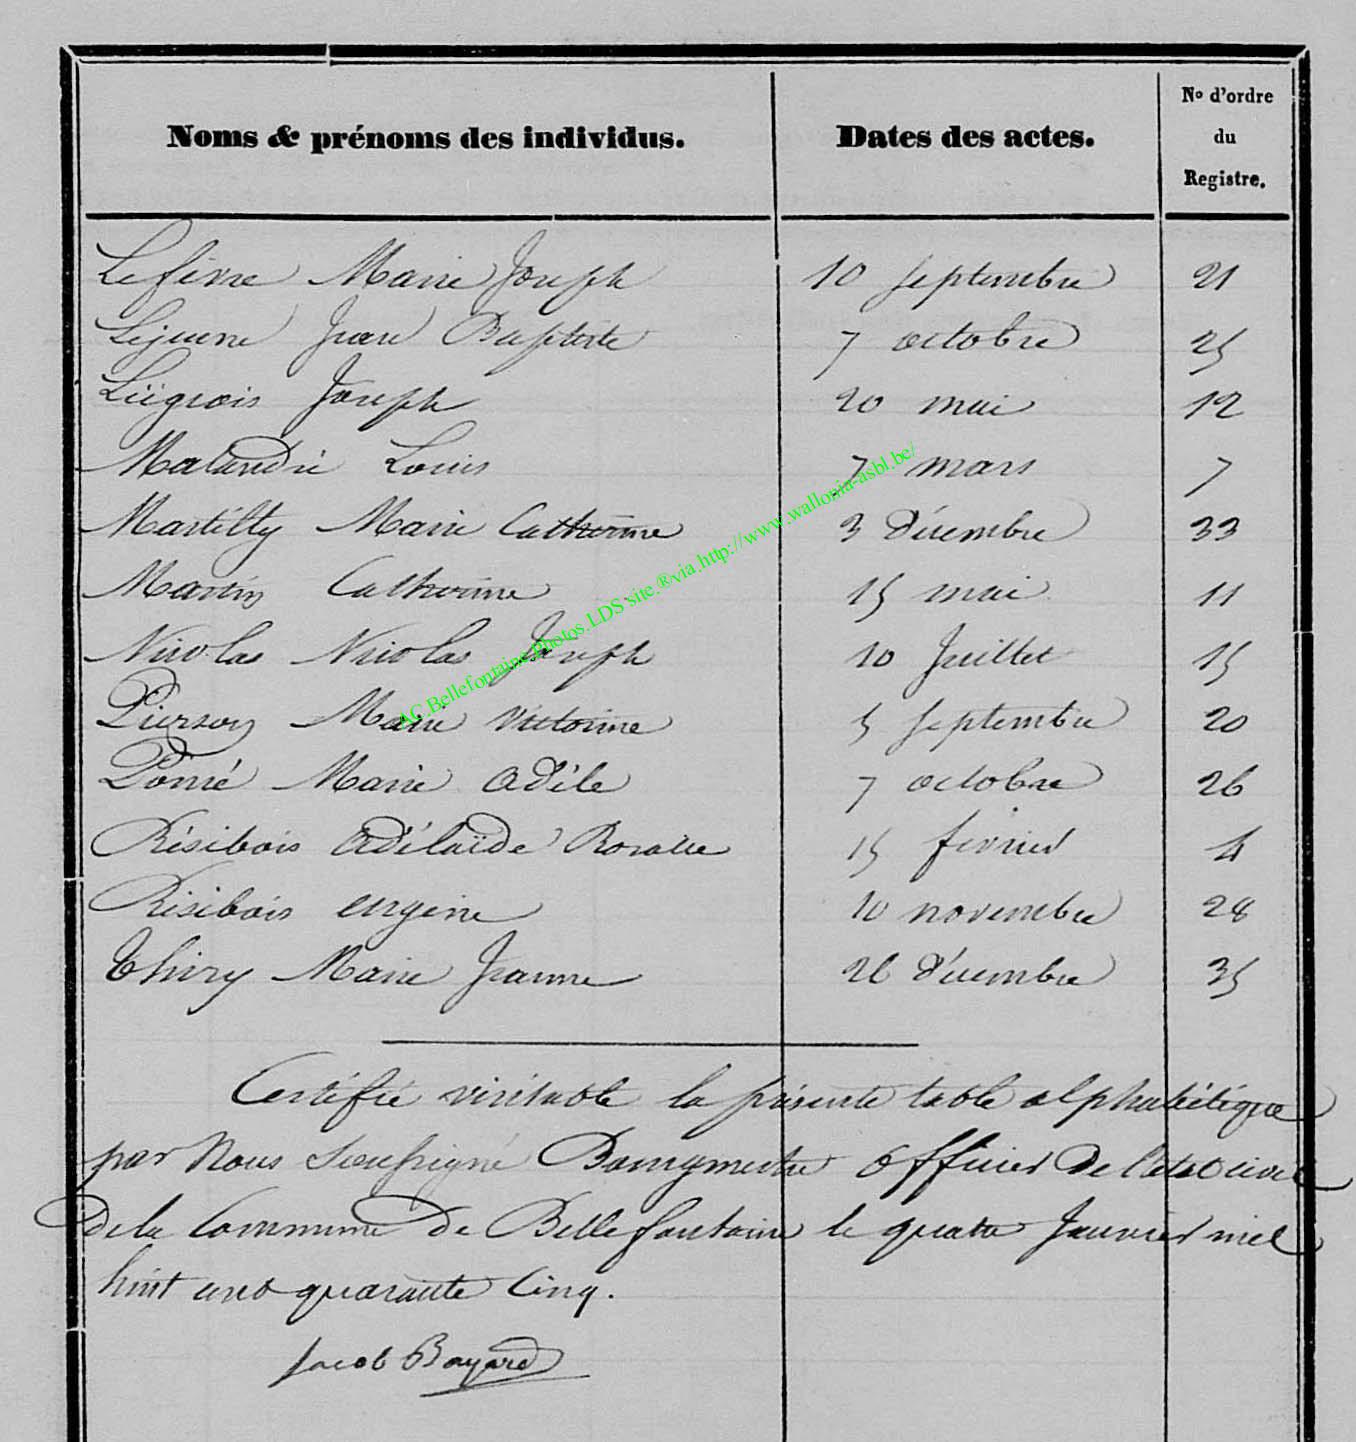 Noms & prénoms des individus. Dates des actes. No d'ordre du Registre.
Lefèvre Marie Joseph 10 septembre 21
Lejeune Jean Baptiste 7 octobre 25
Liégeois Joseph 20 mai 12
Malandré Louis 7 mars 7
Martilly Marie Catherine 3 décembre 33
Martin Catherine 15 mai 11
Nicolas Nicolas Joseph 10 Juillet 15
Pierson Marie Victorine 5 septembre 20
Poncé Marie adèle 7 octobre 26
Résibois adélaïde Rosalie 15 février 4
Résibois eugène 10 novembre 28
Thiry Marie Jeanne 26 décembre 35
Certifié véritable la présente table alphabétique
par Nous Soussigné Bourgmestre officier de l'état civil
de la Commune de Bellefontaine le quatre Janvier mil
huit cent quarante cinq.
Jacob Bayard
AC.Bellefontaine.Photos.LDS site.®via.http://www.wallonia-asbl.be/